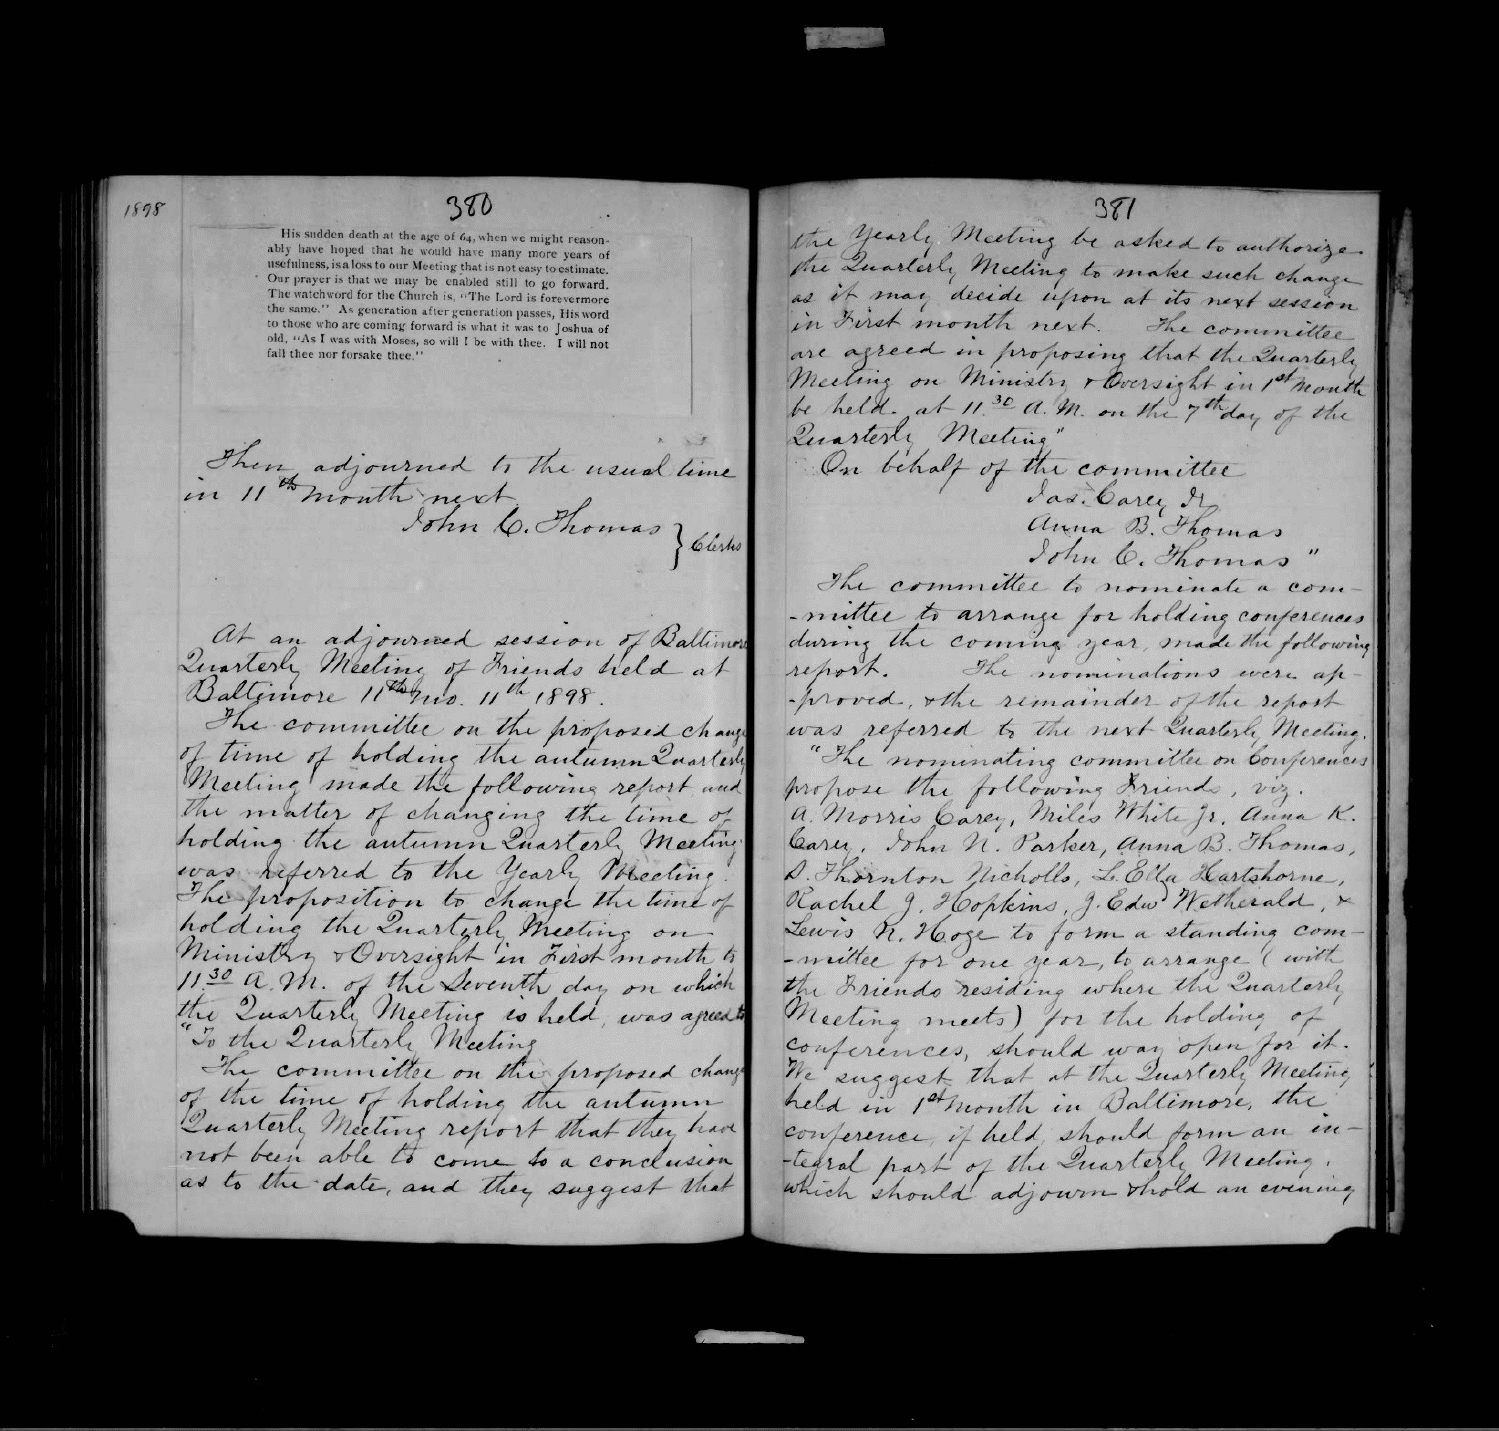 1898
380
His sudden death at the age of 64, when we might reason-
ably have hoped that he would have many more years of
usefulness, is a loss to our Meeting that is not easy to estimate.
Our prayer is that we may be enabled still to go forward.
The watchword for the Church is, "The Lord is forevermore
the same." As generation after generation passes, His word
to those who are coming forward is what it was to Joshua of
old, "As I was with Moses, so will I be with thee. I will not
fail thee nor forsake thee."
Then adjourned to the usual time
in 11th month next.
John C. Thomas } Clerks
At an adjourned session of Baltimore
Quarterly Meeting of Friends held at
Baltimore 11th mo. 11th 1898.
The committee on the proposed change
of time of holding the autumn Quarterly
Meeting made the following report and
the matter of changing the time of
holding the autumn Quarterly Meeting
was referred to the Yearly Meeting.
The proposition to change the time of
holding the Quarterly Meeting on
Ministry & Oversight in First month to
11.30 A.M. of the Seventh day on which
the Quarterly Meeting is held, was agreed to
"To the Quarterly Meeting
The committee on the proposed change
of the time of holding the autumn
Quarterly Meeting report that they have
not been able to come to a conclusion
as to the date, and they suggest that
381
the Yearly Meeting be asked to authorize
the Quarterly Meeting to make such change
as it may decide upon at its next session
in First month next. The committee
are agreed in proposing that the Quarterly
Meeting on Ministry & Oversight in 1st month
be held at 11.30 A.M. on the 7th day of the
Quarterly Meeting"
On behalf of the committee
Jas. Carey Jr
Anna B. Thomas
John C. Thomas"
The committee to nominate a com-
-mittee to arrange for holding conferences
during the coming year, made the following
report. The nominations were ap-
-proved, & the remainder of the report
was referred to the next Quarterly Meeting.
"The nominating committee on Conferences
propose the following Friends, viz.
A. Morris Carey, Miles White Jr. Anna K.
Carey, John N. Parker, Anna B. Thomas,
S. Thornton Nicholls, L. Ella Hartshorne,
Rachel J. Hopkins, J. Edw Wetherald, &
Lewis N. Hoge to form a standing com-
-mittee for one year, to arrange (with
the Friends residing where the Quarterly
Meeting meets) for the holding of
conferences, should way open for it.
We suggest that at the Quarterly Meeting
held in 1st month in Baltimore, the
conference, if held, should form an in-
-tegral part of the Quarterly Meeting,
which should adjourn & hold an evening